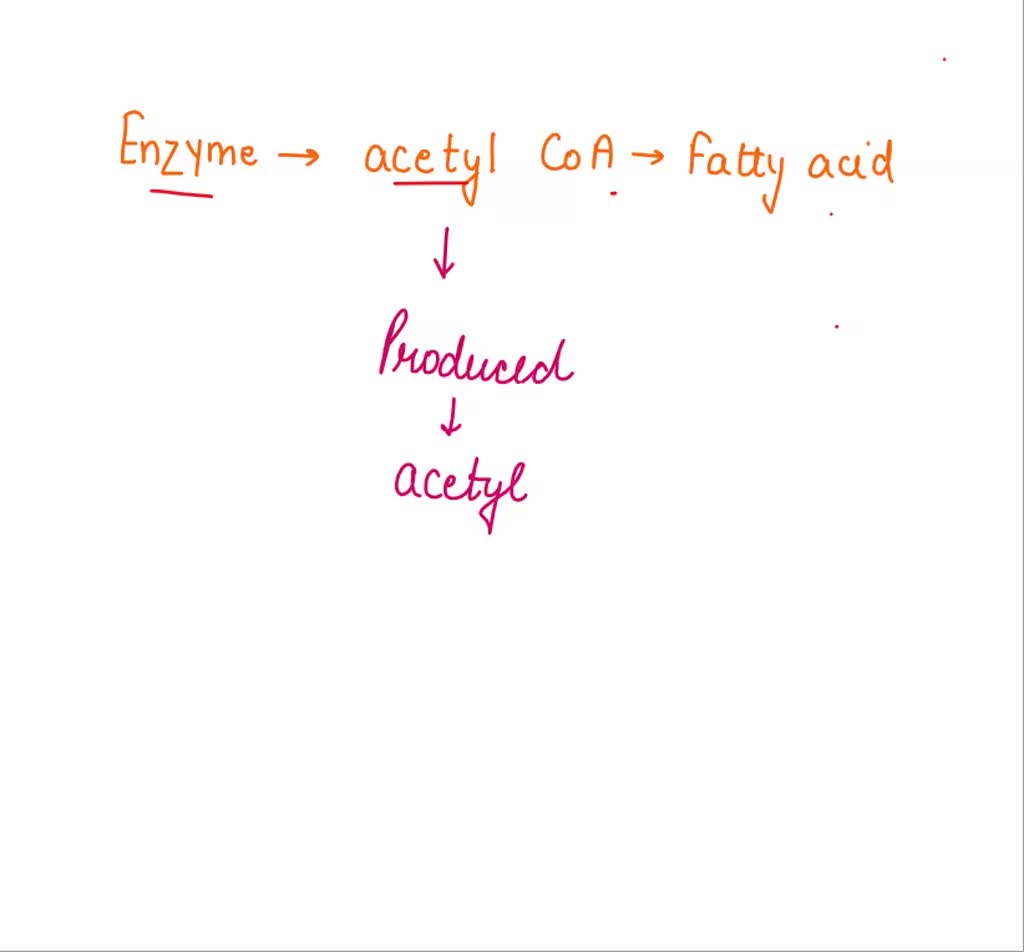 Enzyme → acetyl CoA → Fatty acid
↓
Produced
↓
acetyl